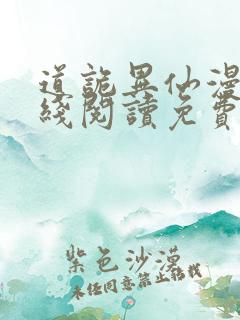 道詭異仙漫
綫閱讀免費
紫色沙漠
未经同意禁止转载